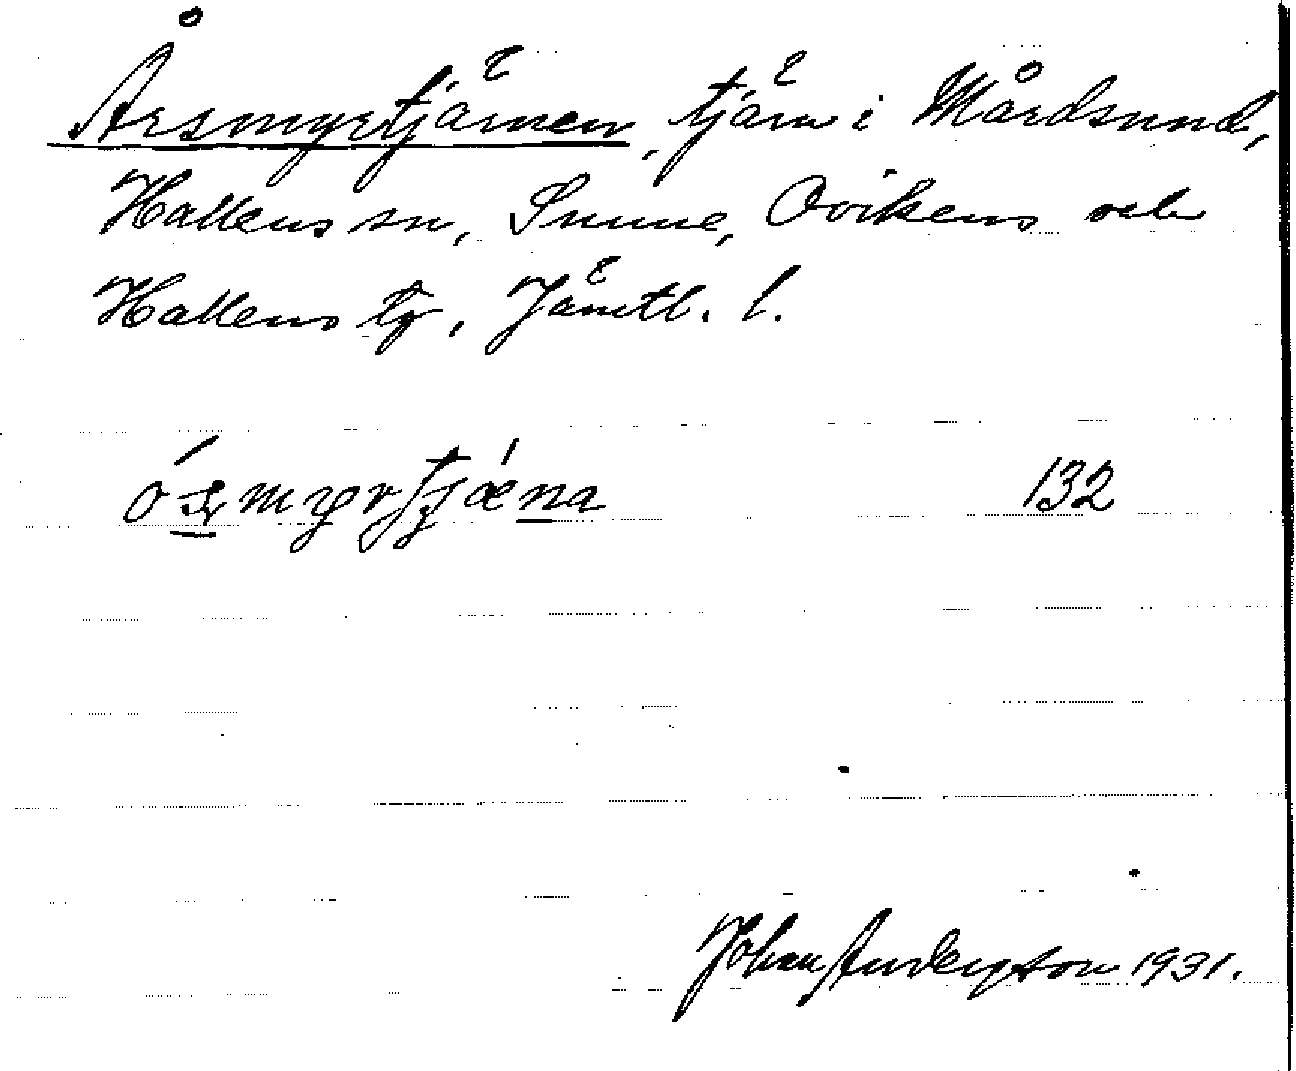 Årsmyrtjärnen, tjärn i Mårdsund,
Hallens sn, Sunne, Ovikens och
Hallens tg, Jämtl. l.
132
Johan Anderzson 1931.